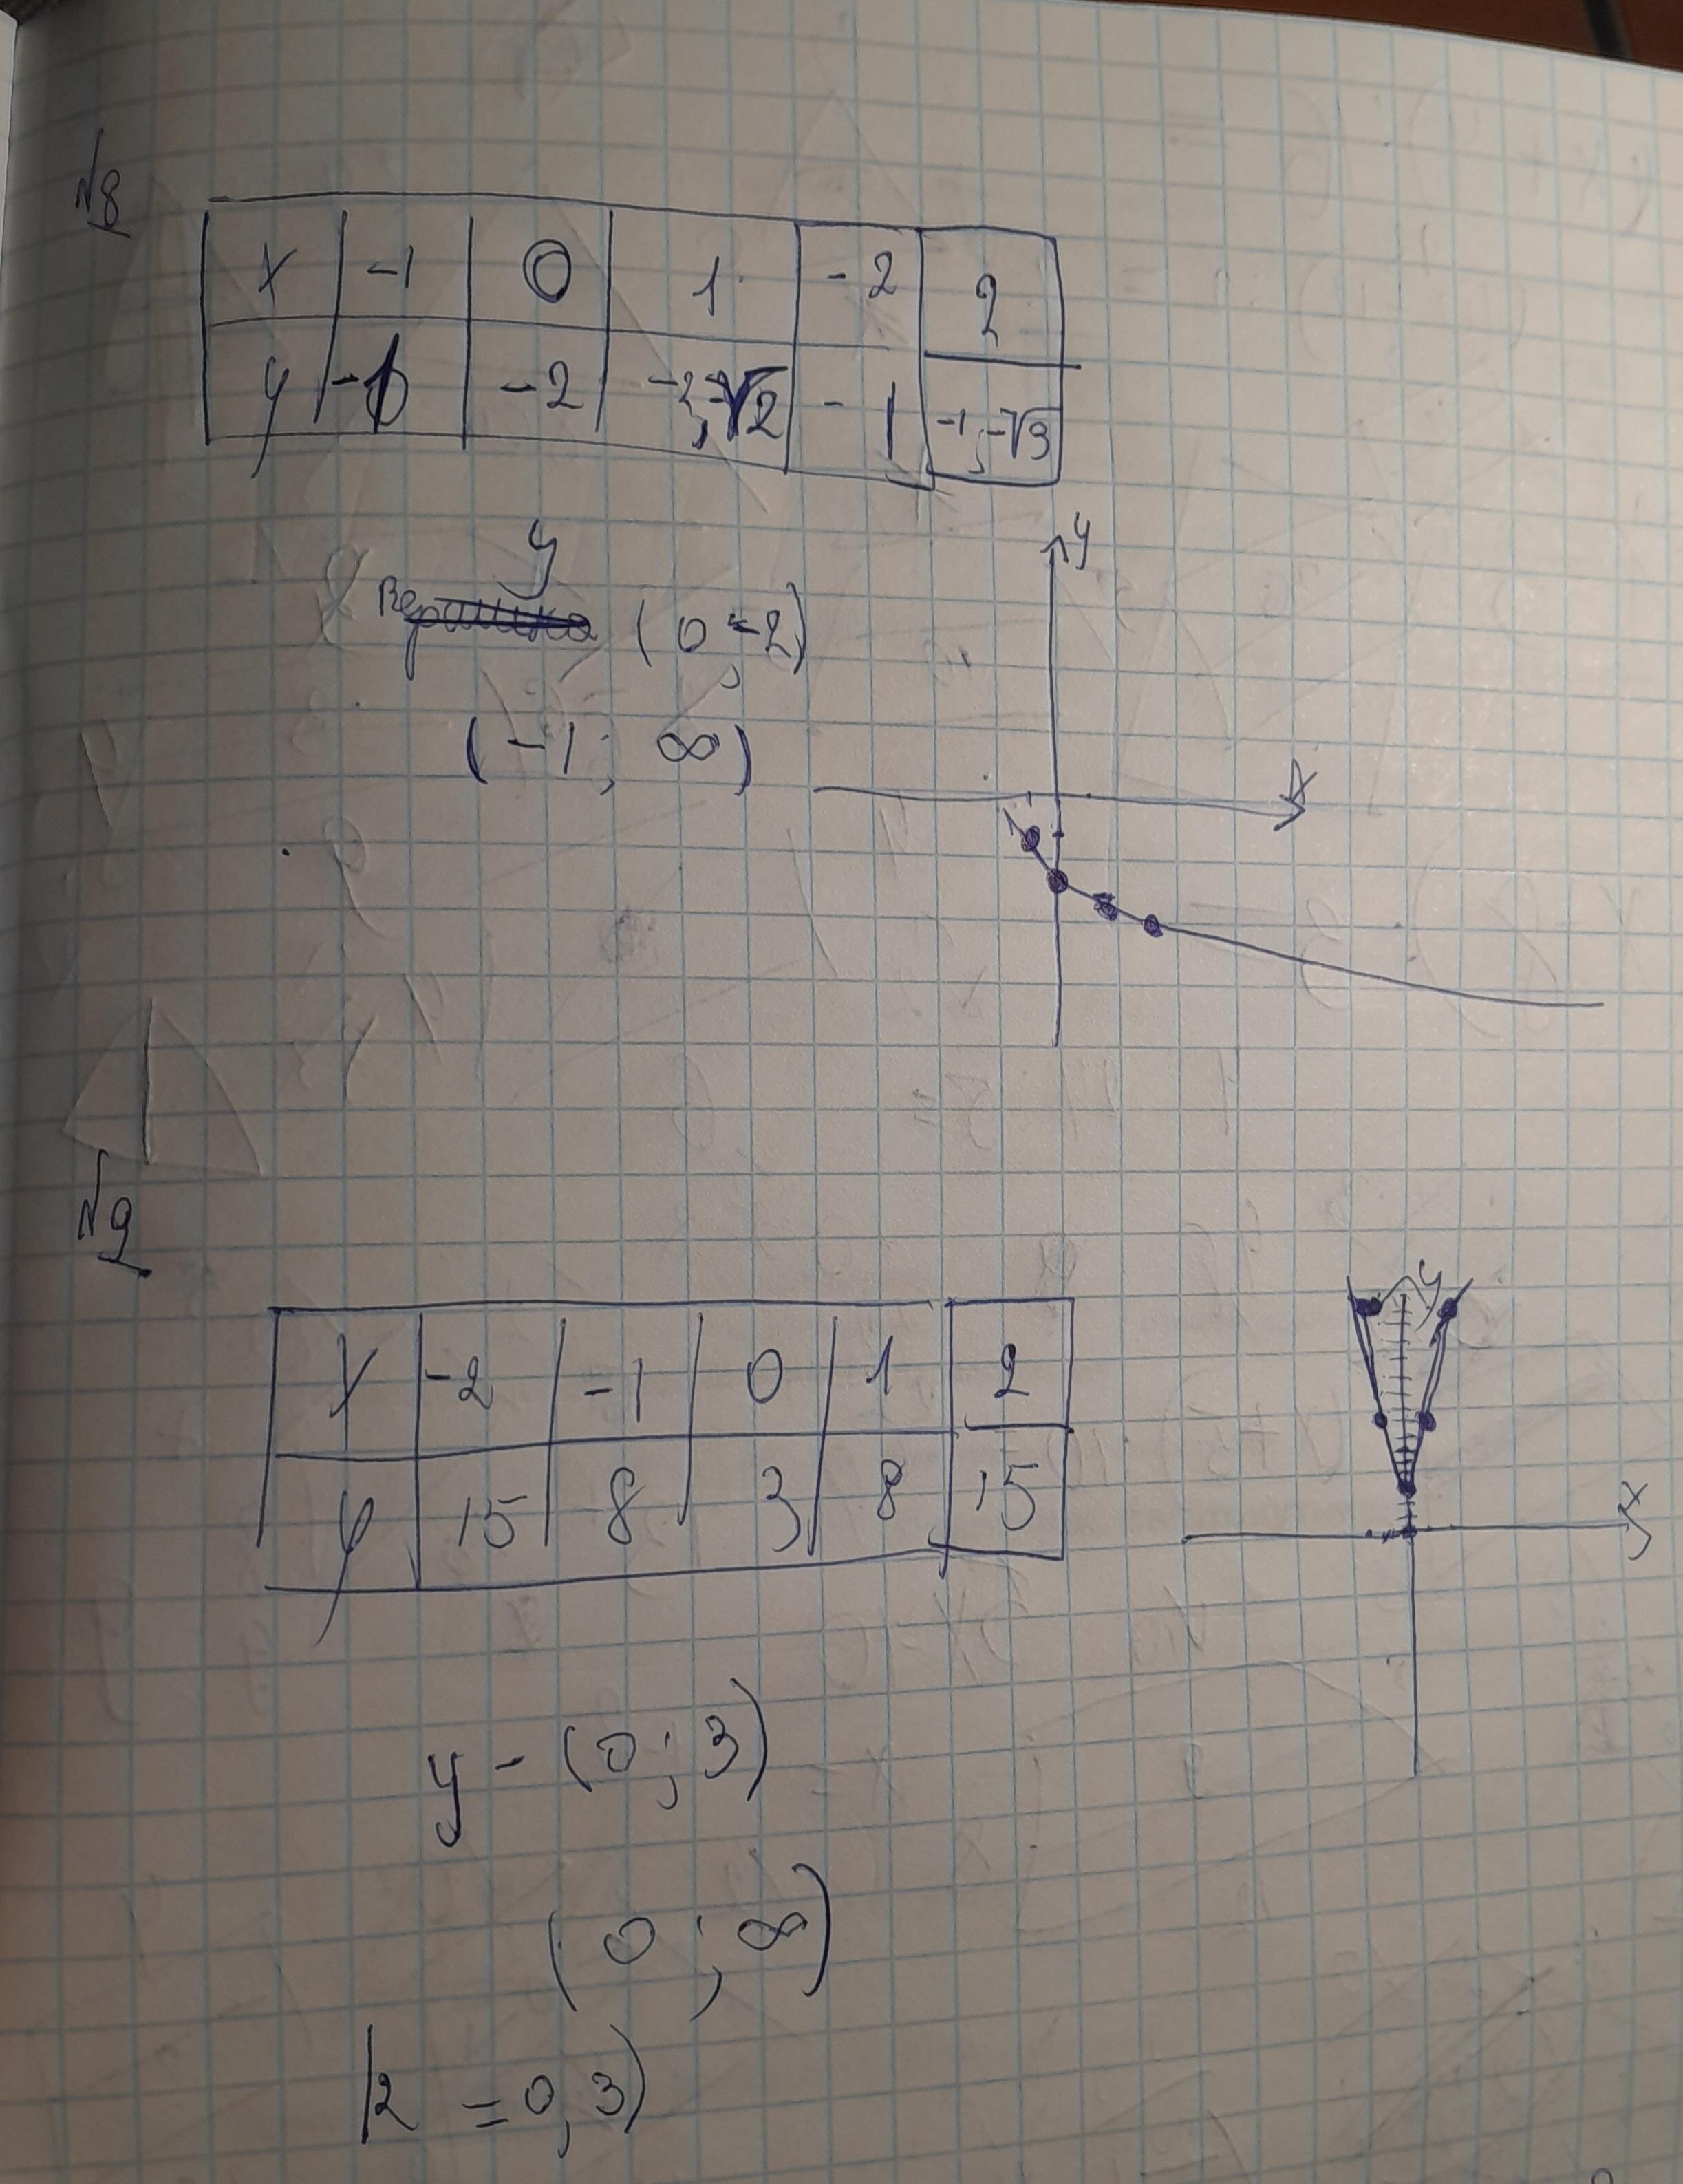 №8
x -1 0 1 -2 2
y -1 -2 -2;-√2 -1 -1;-√3
y
(0;-2)
(-1; ∞)
y
x
№9
x -2 -1 0 1 2
y 15 8 3 8 15
y
x
y - (0; 3)
(0; ∞)
= 0, 3)